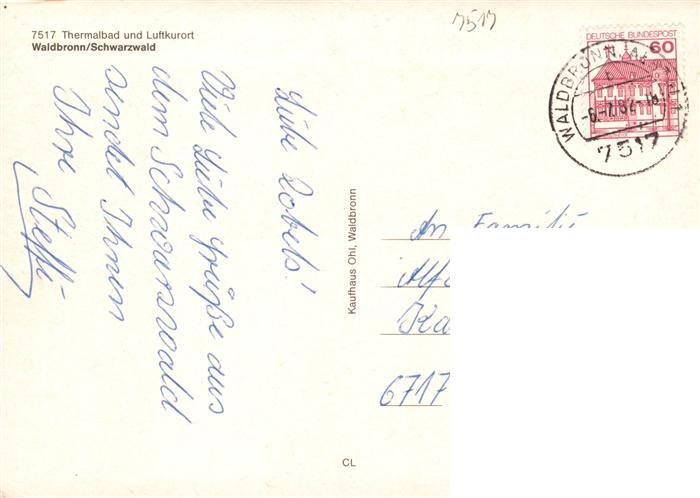 7517 Thermalbad und Luftkurort
Waldbronn/Schwarzwald
7517
DEUTSCHE BUNDESPOST
60
WALDBRONN
-6.-7.82-18
7517
Liebe
Viele liebe Grüße aus
dem Schwarzwald
sendet Ihnen
Ihre Steffi
Kaufhaus Ohl, Waldbronn
An Familie
6717
CL